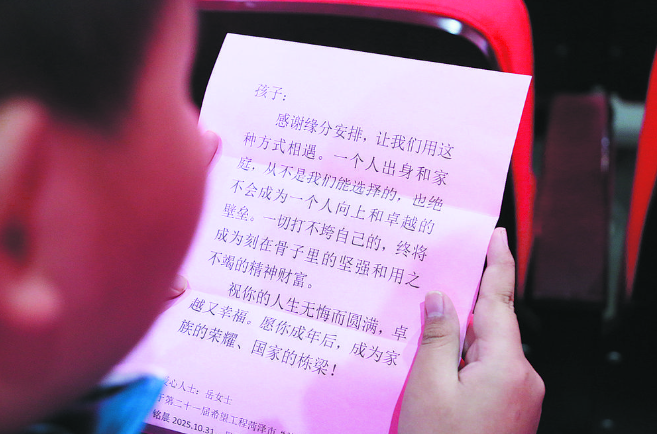 孩子：
感谢缘分安排，让我们用这
种方式相遇。一个人出身和家
庭，从不是我们能选择的，也绝
不会成为一个人向上和卓越的
壁垒。一切打不垮自己的，终将
成为刻在骨子里的坚强和用之
不竭的精神财富。
祝你的人生无悔而圆满，卓
越又幸福。愿你成年后，成为家
族的荣耀、国家的栋梁！
心人士：岳女士
于第二十一届希望工程菏泽市
铭晨 2025.10.31